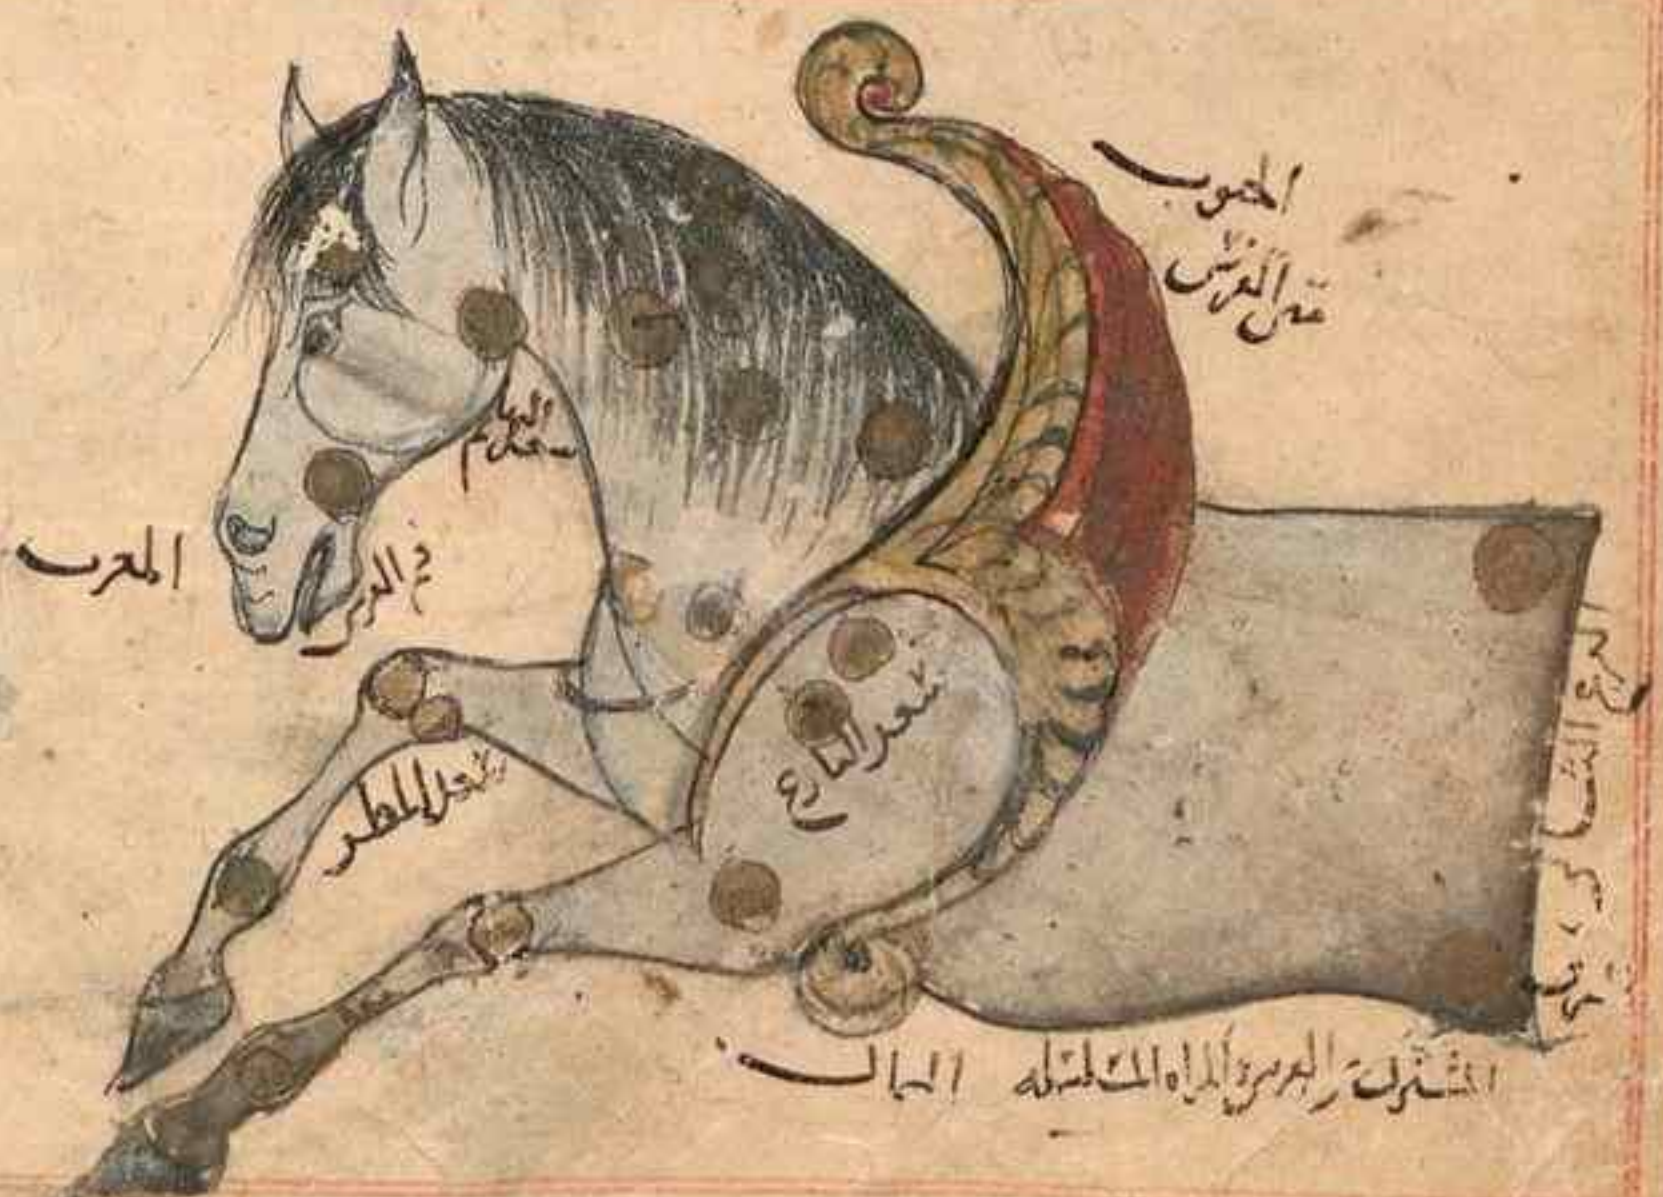 الجنوب
متن الفرس
سعد البهايم
المغرب
فم الفرس
سعد البارع
سعد المطر
المشترك بين الفرس والمراه المسلسله
الشمال
المشرق